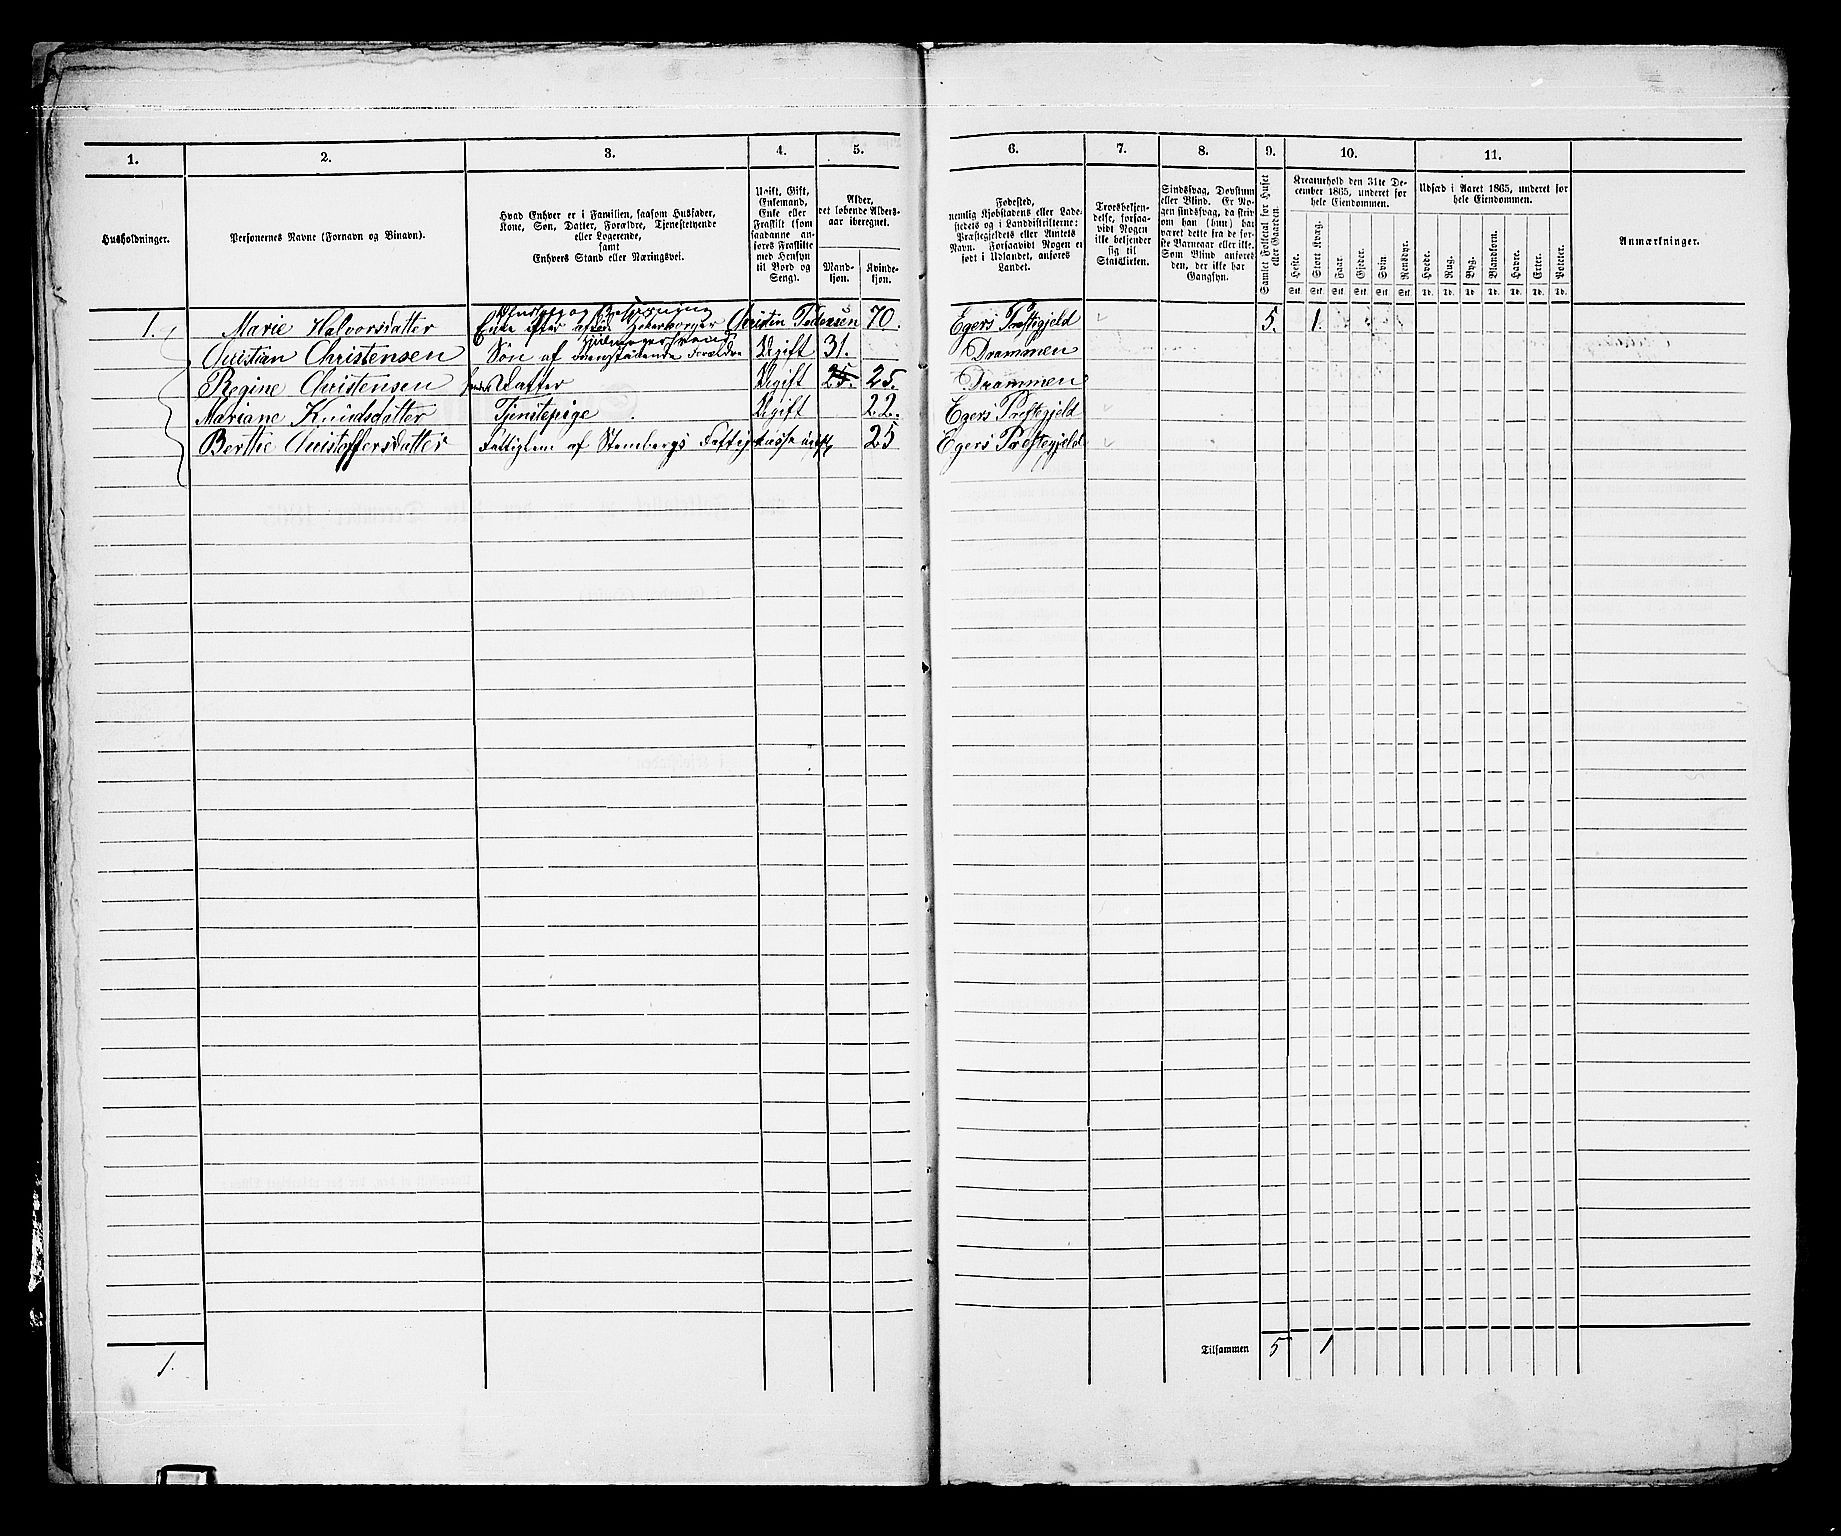 1. 2. 3. 4. 5. 6. 7. 8. 9. 10. 11.
Husholdninger.
Personernes Navne (Fornavn og Binavn).
Hvad Enhver er i Familien, saasom Husfader,
Kone, Søn, Datter, Forældre, Tjenestetyende
eller Logerende,
samt
Enhvers Stand eller Næringsvei.
Ugift, Gift,
Enkemand,
Enke eller
Fraskilt (som
saadanne an-
føres Fraskilte
med Hensyn
til Bord og
Seng).
Alder,
det løbende Alders-
aar iberegnet.
Mand-
kjøn.
Kvinde-
kjøn.
Fødested,
nemlig Kjøbstadens eller Lade-
stedets og i Landdistrikterne:
Præstegjeldets eller Amtets
Navn. Forsaavidt Nogen er
født i Udlandet, anføres
Landet.
Troesbekjen-
delse, forsaa-
vidt Nogen
ikke bekjender
sig til
Statskirken.
Sindssvag, Døvstum
eller Blind. Er No-
gen sindssvag, da skriv
om han (hun) har
været dette fra de før-
ste Barneaar eller ikke.
Som Blind anføres
den, der ikke har
Gangsyn.
Samlet Folketal for Huset
eller Gaarden.
Kreaturhold den 31te De-
cember 1865, underet for
hele Eiendommen.
Heste. Stort Kvæg. Faar. Gjeder. Svin. Rensdyr.
Stk. Stk. Stk. Stk. Stk. Stk.
Udsæd i Aaret 1865, underet for
hele Eiendommen.
Hvede. Rug. Byg. Blandkorn. Havre. Erter. Poteter.
Td. Td. Td. Td. Td. Td. Td.
Anmærkninger.
1. Marie Halvorsdatter Enke efter Christin Pedersen 70. Egers Præstegjeld 5. 1.
Christian Christensen Søn af Forældre Ugift 31. Drammen
Regine Christensen Datter Ugift 25. 25. Drammen
Mariane Knudsdatter Tjenstepige Ugift 22. Egers Præstegjeld
Berthe Christoffersdatter Fattiglem af Stembergs Fattigkasse ugift 25 Egers Præstegjeld
1.
Tilsammen 5 1